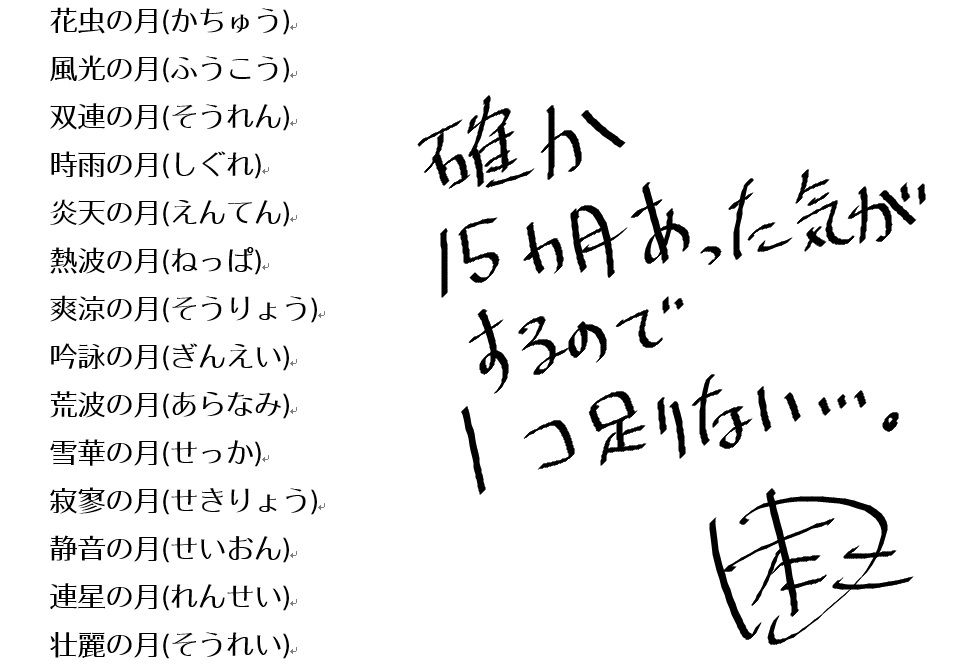 花虫の月(かちゅう)
風光の月(ふうこう)
双連の月(そうれん)
時雨の月(しぐれ)
炎天の月(えんてん)
熱波の月(ねっぱ)
爽涼の月(そうりょう)
吟詠の月(ぎんえい)
荒波の月(あらなみ)
雪華の月(せっか)
寂寥の月(せきりょう)
静音の月(せいおん)
連星の月(れんせい)
壮麗の月(そうれい)
確か
15カ月あった気が
するので
1コ足りない…。